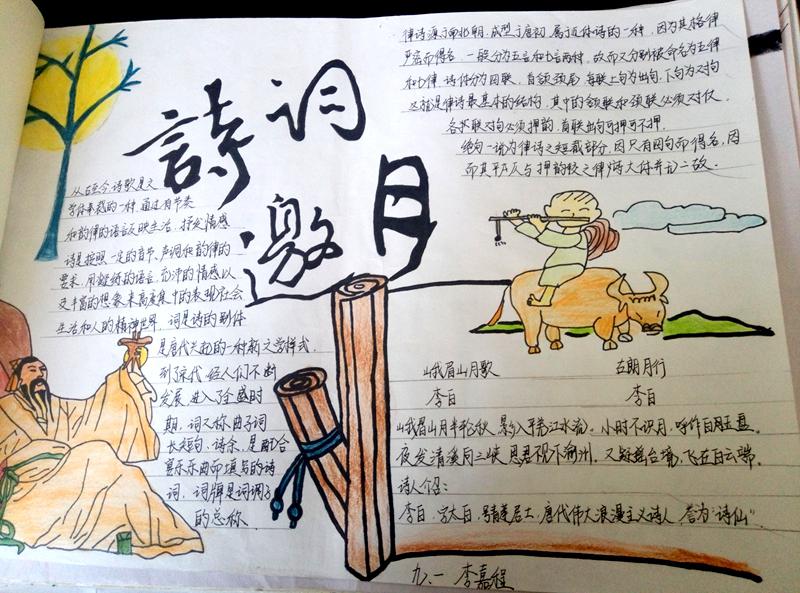 詩词
邀月
律诗源于南北朝,成型于唐初,属于近体诗的一种,因为其格律
严密而得名,一般分为五言和七言两种,故而又分别被命名为五律
和七律,诗体分为四联,首颔颈尾,每联上句为出句,下句为对句
这就是律诗最基本的结构,其中的颔联和颈联必须对仗,
各联对句必须押韵,首联出句可押可不押.
绝句一说为律诗之短截部分,因只有四句而得名,因
而其平仄与押韵较之律诗大体并无二致.
从古至今诗歌是文
学体裁的一种,通过有节奏
和韵律的语言反映生活,抒发情感
诗是按照一定的音节、声调和韵律的
要求,用凝练的语言,充沛的情感以
及丰富的想象来高度集中的表现社会
生活和人的精神世界,词是诗的别体
是唐代兴起的一种新文学样式,
到了宋代,经人们不断
发展,进入了全盛时
期,词又称曲子词
长短句、诗余,是配合
宴乐乐曲而填写的诗
词,词牌是词调子
的总称
峨眉山月歌 古朗月行
李白 李白
峨眉山月半轮秋,影入平羌江水流。小时不识月,呼作白玉盘。
夜发清溪向三峡,思君不见下渝州。又疑瑶台镜,飞在白云端。
诗人介绍:
李白,字太白,号青莲居士,唐代伟大浪漫主义诗人,誉为"诗仙"
九.一 李嘉程